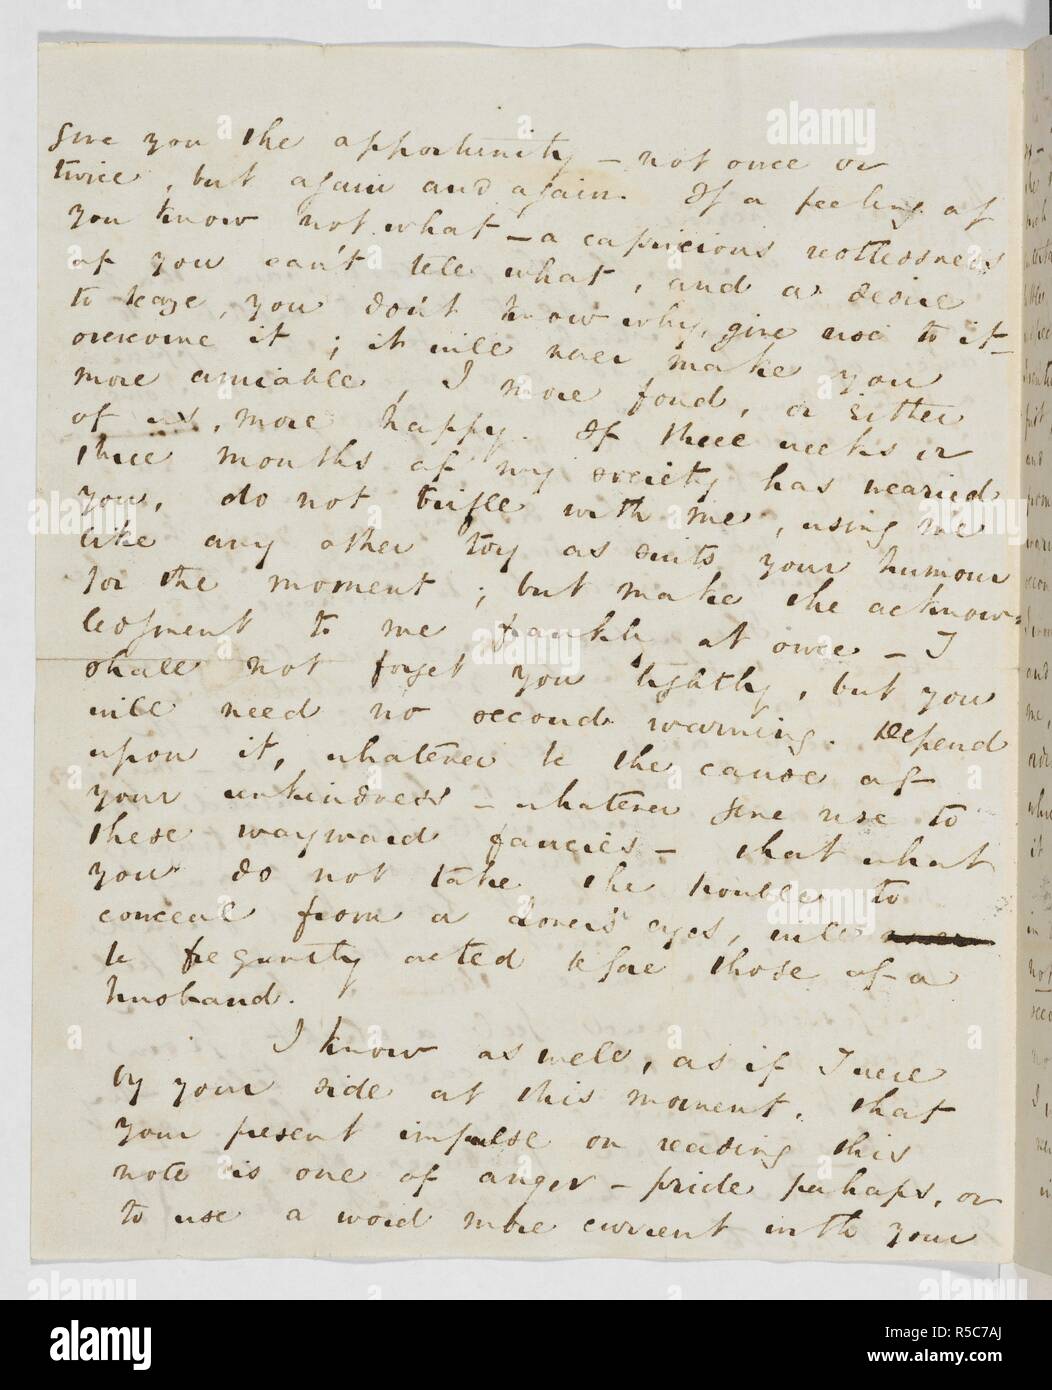 give you the opportunity – not once or
twice, but again and again. If a feeling of
you know not what – a capricious restlessness
of you can't tell what, and a desire
to teaze, you don't know why, give rise to it –
overcome it ; it will never make you
more amiable, I more fond, or either
of us, more happy. If three weeks or
three months of my society has wearied
you, do not trifle with me, using me
like any other toy as suits your humour
for the moment ; but make the acknow-
ledgment to me frankly at once – I
shall not forget you lightly, but you
will need no second warning. Depend
upon it, whatever be the cause of
your unkindness – whatever give rise to
these wayward fancies – that what
you do not take the trouble to
conceal from a Lover's eyes, will
be frequently acted before those of a
husband.
I know as well, as if I were
by your side at this moment, that
your present impulse on reading this
note is one of anger – pride perhaps, or
to use a word more current with your
alamy
Image ID: R5C7AJ
www.alamy.com